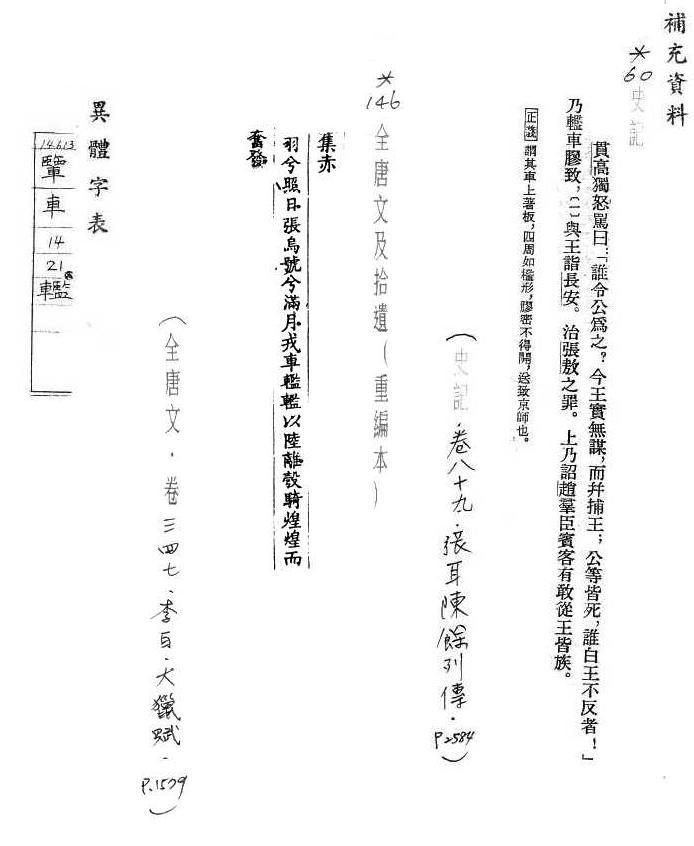 補充資料
*60 史記
貫高獨怒罵曰：「誰令公爲之？今王實無謀，而幷捕王；公等皆死，誰白王不反者！」
乃轞車膠致，〔一〕與王詣長安。治張敖之罪。上乃詔趙羣臣賓客有敢從王皆族。
正義 謂其車上著板，四周如檻形，膠密不得開，送致京師也。
（史記．卷八十九．張耳陳餘列傳．P.2584）
*146 全唐文及拾遺（重編本）
集赤
羽兮照日張烏號兮滿月戎車轞轞以陸離彀騎煌煌而
奮發
（全唐文．卷三四七．李白．大獵賦．P.1579）
異體字表
車
14
21
轞